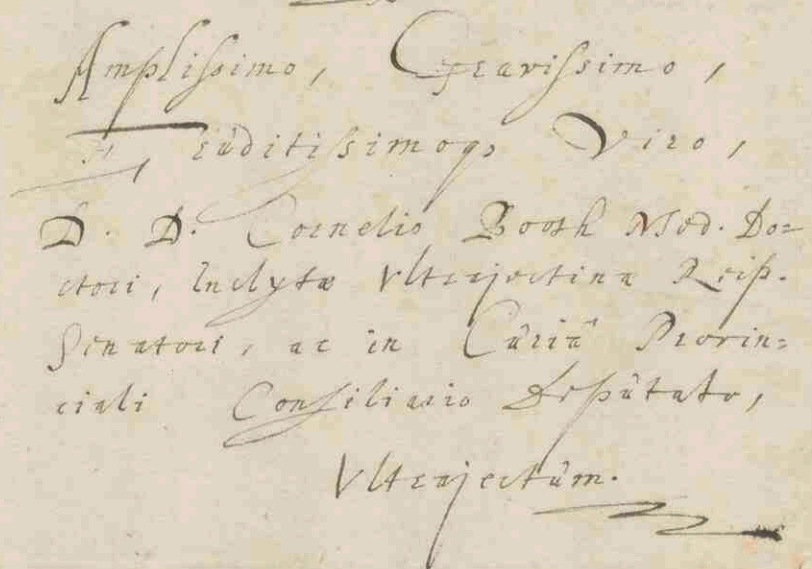 Amplissimo, Gravissimo,
Eruditissimoq; Viro,
D. D. Cornelio Booth Med. Do-
ctori, Inclytæ Ultrajectinæ Reip.
Senatori, ac in Curiâ Provin-
ciali Consiliario Deputato,
Ultrajectum.